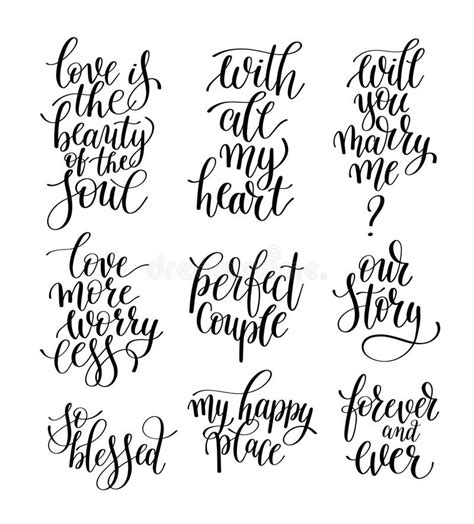 love is
the
beauty
of the
soul
with
all
my
heart
will
you
marry
me
?
love
more
worry
less
perfect
couple
our
story
so
blessed
my happy
place
forever
and
ever